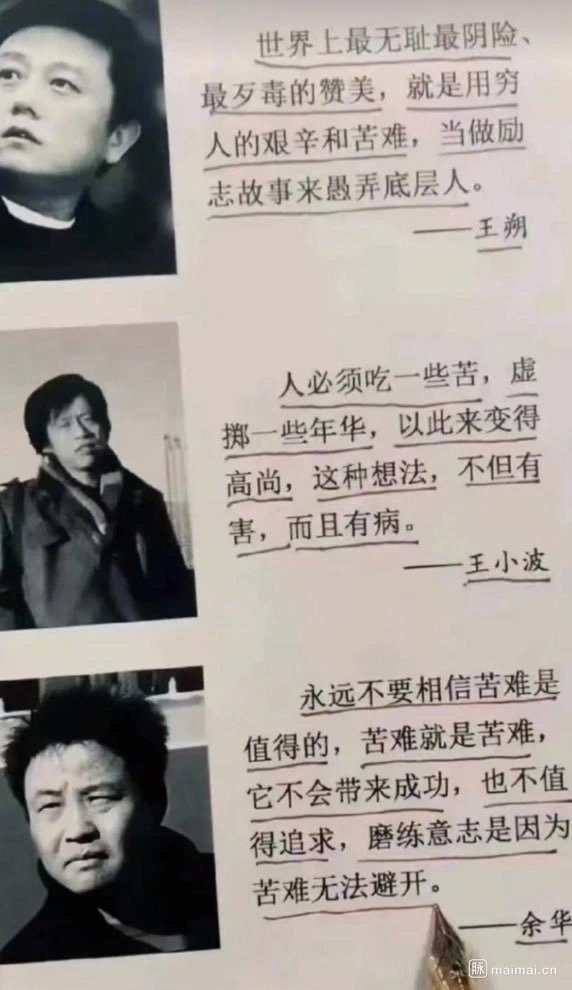 世界上最无耻最阴险、
最歹毒的赞美，就是用穷
人的艰辛和苦难，当做励
志故事来愚弄底层人。
——王朔
人必须吃一些苦，虚
掷一些年华，以此来变得
高尚，这种想法，不但有
害，而且有病。
——王小波
永远不要相信苦难是
值得的，苦难就是苦难，
它不会带来成功，也不值
得追求，磨练意志是因为
苦难无法避开。
——余华
脉 maimai.cn